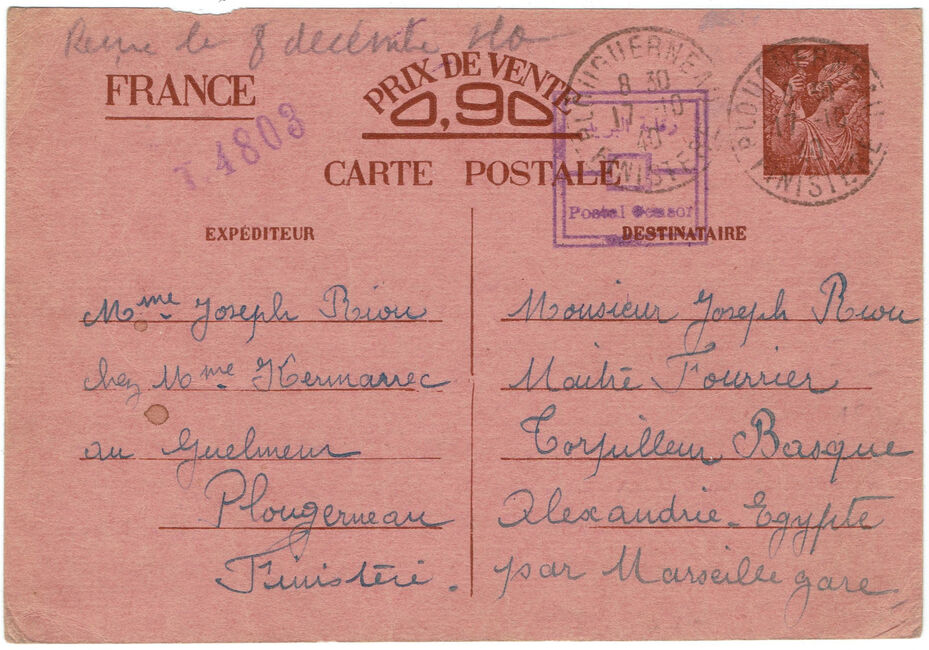 Reçue le 8 décembre 40
FRANCE
PRIX-DE VENTE
0,90
T. 4803
CARTE POSTALE
PLOUGUERNEAU
8 30
17 -10
40
FINISTERE
Postal Censor
PLOUGUERNEAU
FINISTERE
EXPÉDITEUR
Mme Joseph Riou
chez Mme Kermarrec
au Guelmeur
Plougerneau
Finistère.
DESTINATAIRE
Monsieur Joseph Riou
Maitre Fourrier
Torpilleur Basque
Alexandrie-Egypte
par Marseille gare